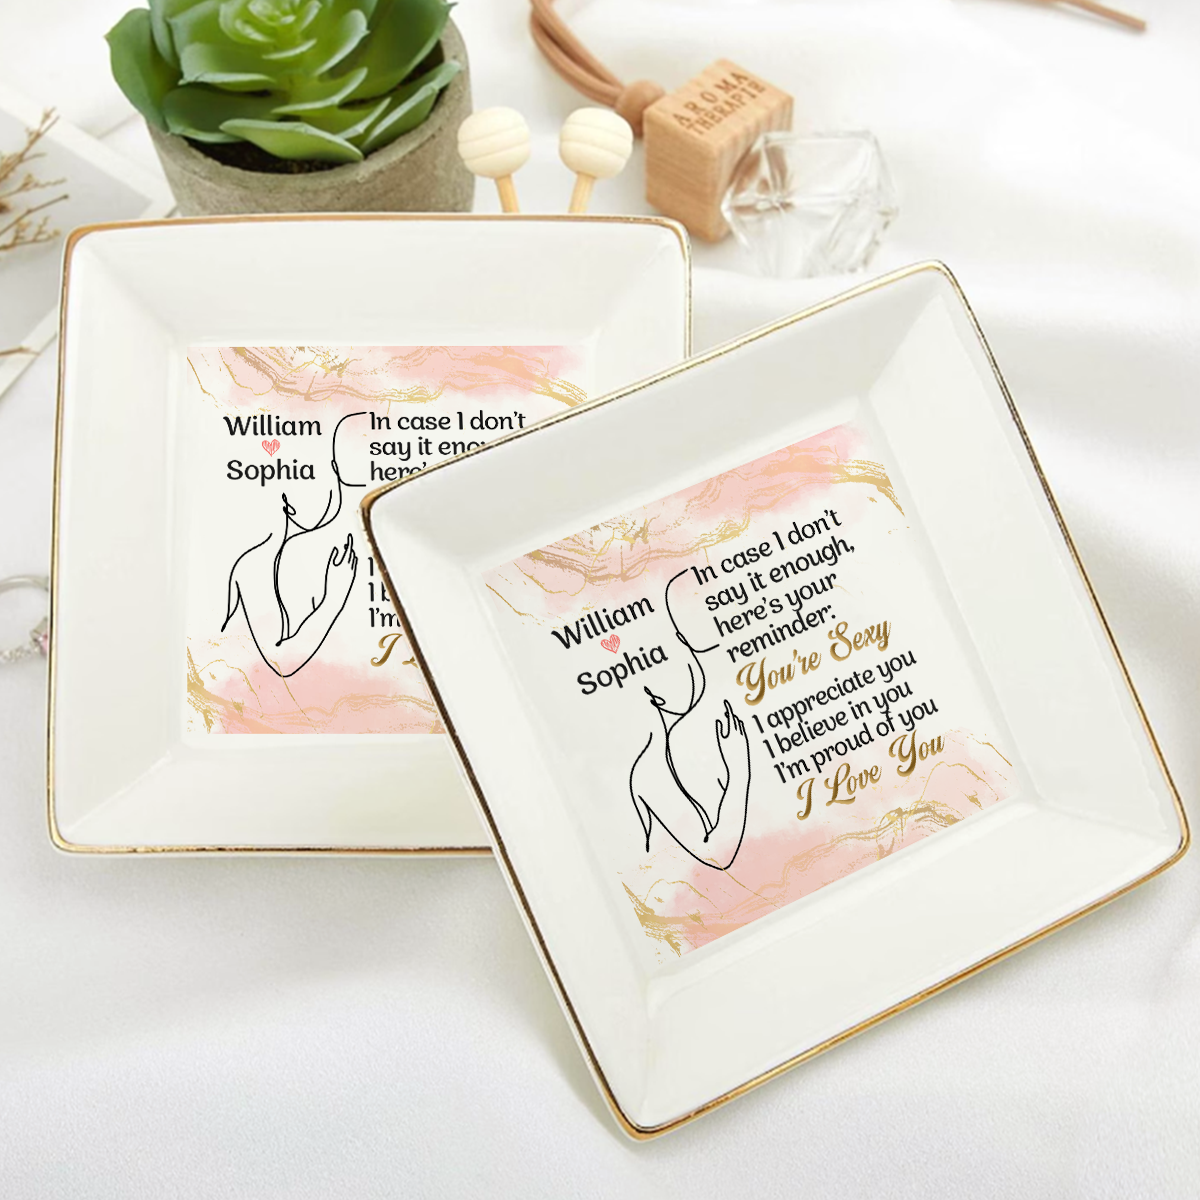 AROMA
THERAPIE
William
Sophia
In case I don't
say it
here's
I
I'm
I
In case I don't
say it enough,
here's your
reminder:
You're Sexy
William
Sophia
I appreciate you
I believe in you
I'm proud of you
I Love You